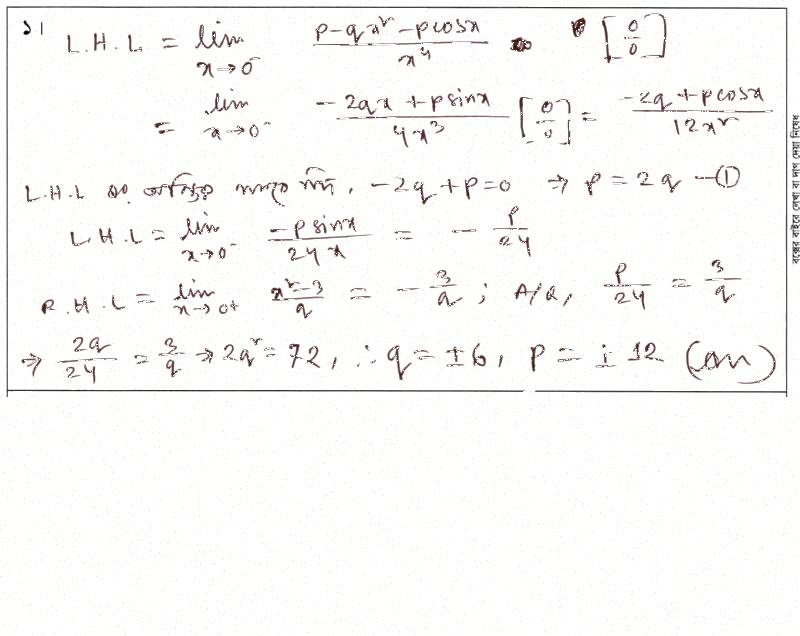 ১। L.H.L = lim x→0⁻ (p-qx²-pcosx)/x⁴ [0/0]
= lim x→0⁻ (-2qx+psinx)/4x³ [0/0] = (-2q+pcosx)/12x²
L.H.L এর অস্তিত্ব থাকতে হলে, -2q+p=0 ⇒ p=2q —①
L.H.L = lim x→0⁻ (-psinx)/24x = -p/24
R.H.L = lim x→0+ (x²-3)/q = -3/q ; A/Q, p/24 = 3/q
⇒ 2q/24 = 3/q ⇒ 2q² = 72, ∴ q = ±6, p = ±12 (Ans)
বক্সের বাইরে লেখা বা দাগ দেয়া নিষেধ